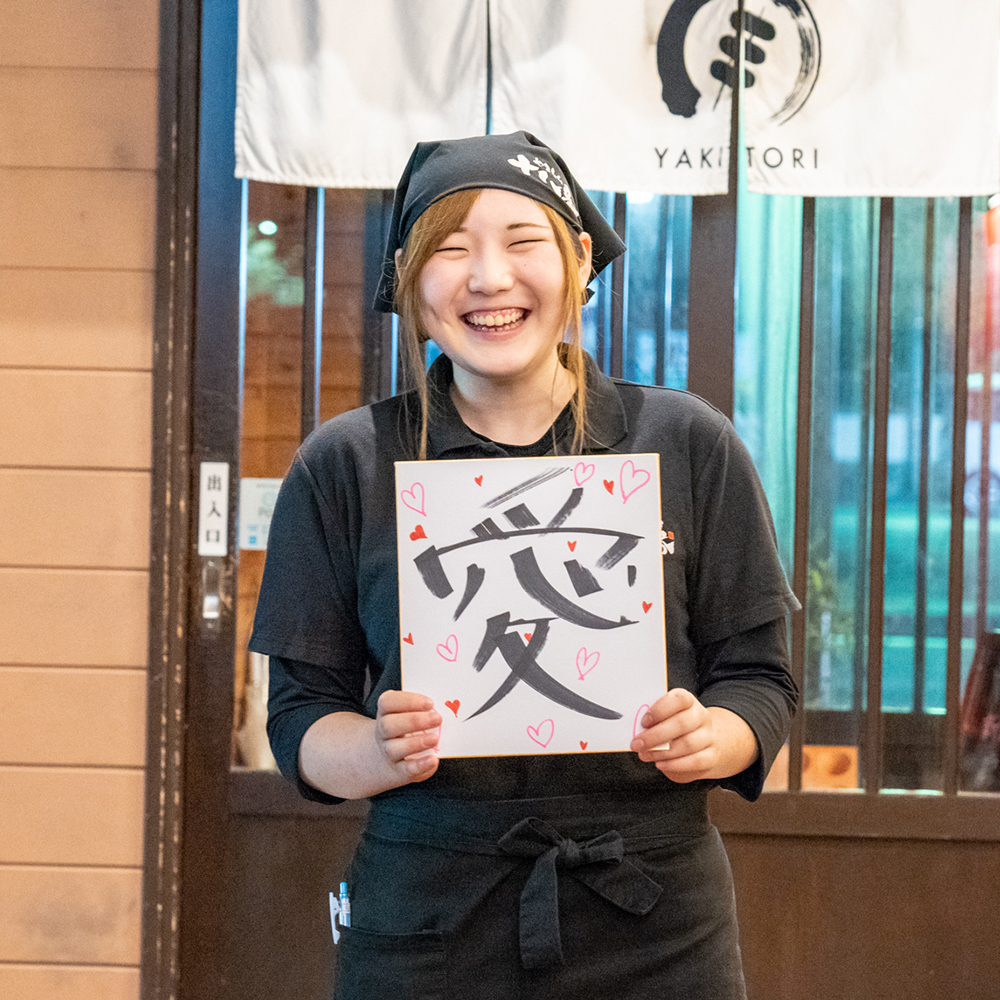 YAKITORI
出入口
愛